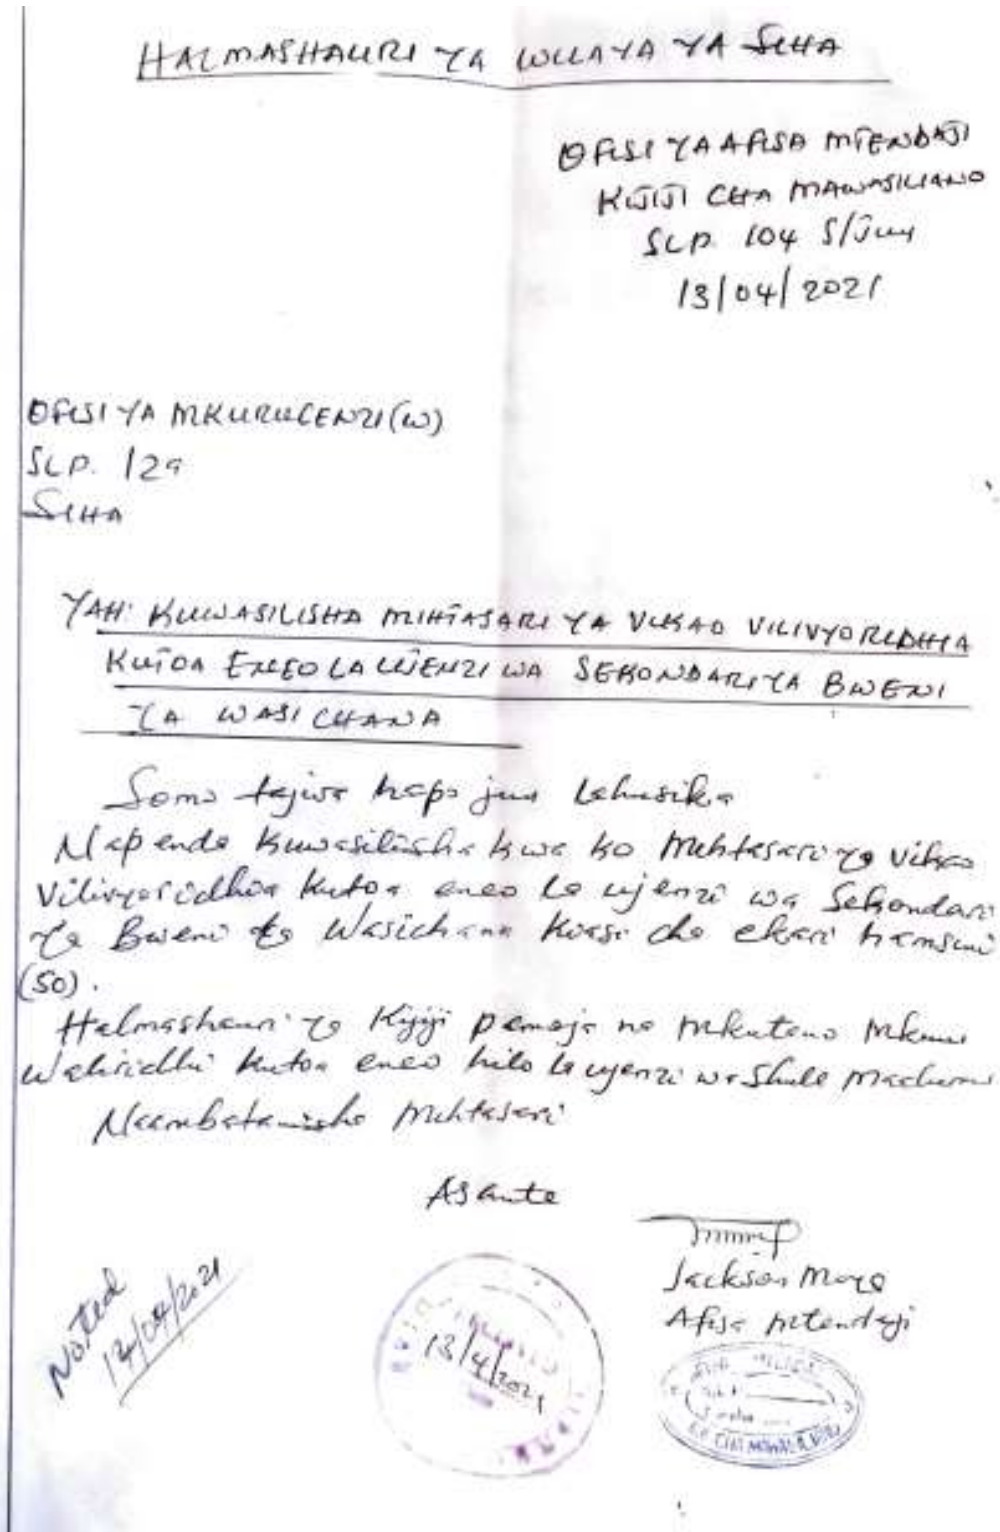 HALMASHAURI YA WILAYA YA SIHA
OFISI YA AFISA MTENDAJI
KIJIJI CHA MAWASILIANO
SLP. 104 S/Juu
13/04/2021
OFISI YA MKURUGENZI (W)
SLP. 129
SIHA
YAH: KUWASILISHA MIHTASARI YA VIKAO VILIVYORIDHIA
KUTOA ENEO LA UJENZI WA SEKONDARI YA BWENI
YA WASICHANA
Somo tajwa hapo juu lahusika
Napenda Kuwasilisha kwako Muhtasari ya vikao
Vilivyoridhia kutoa eneo la ujenzi wa Sekondari
ya Bweni ya Wasichana Kiasi cha ekari hamsini
(50).
Halmashauri ya Kijiji pamoja na Mkutano Mkuu
Waliridhi kutoa eneo hilo la ujenzi wa Shule
Naambatanisha Muhtasari
Asante
Jackson
Afisa Mtendaji
Noted
14/04/2021
13/4/2021